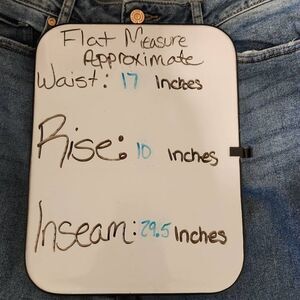 Flat Measure
Approximate
Waist: 17 Inches
Rise: 10 Inches
Inseam: 29.5 Inches